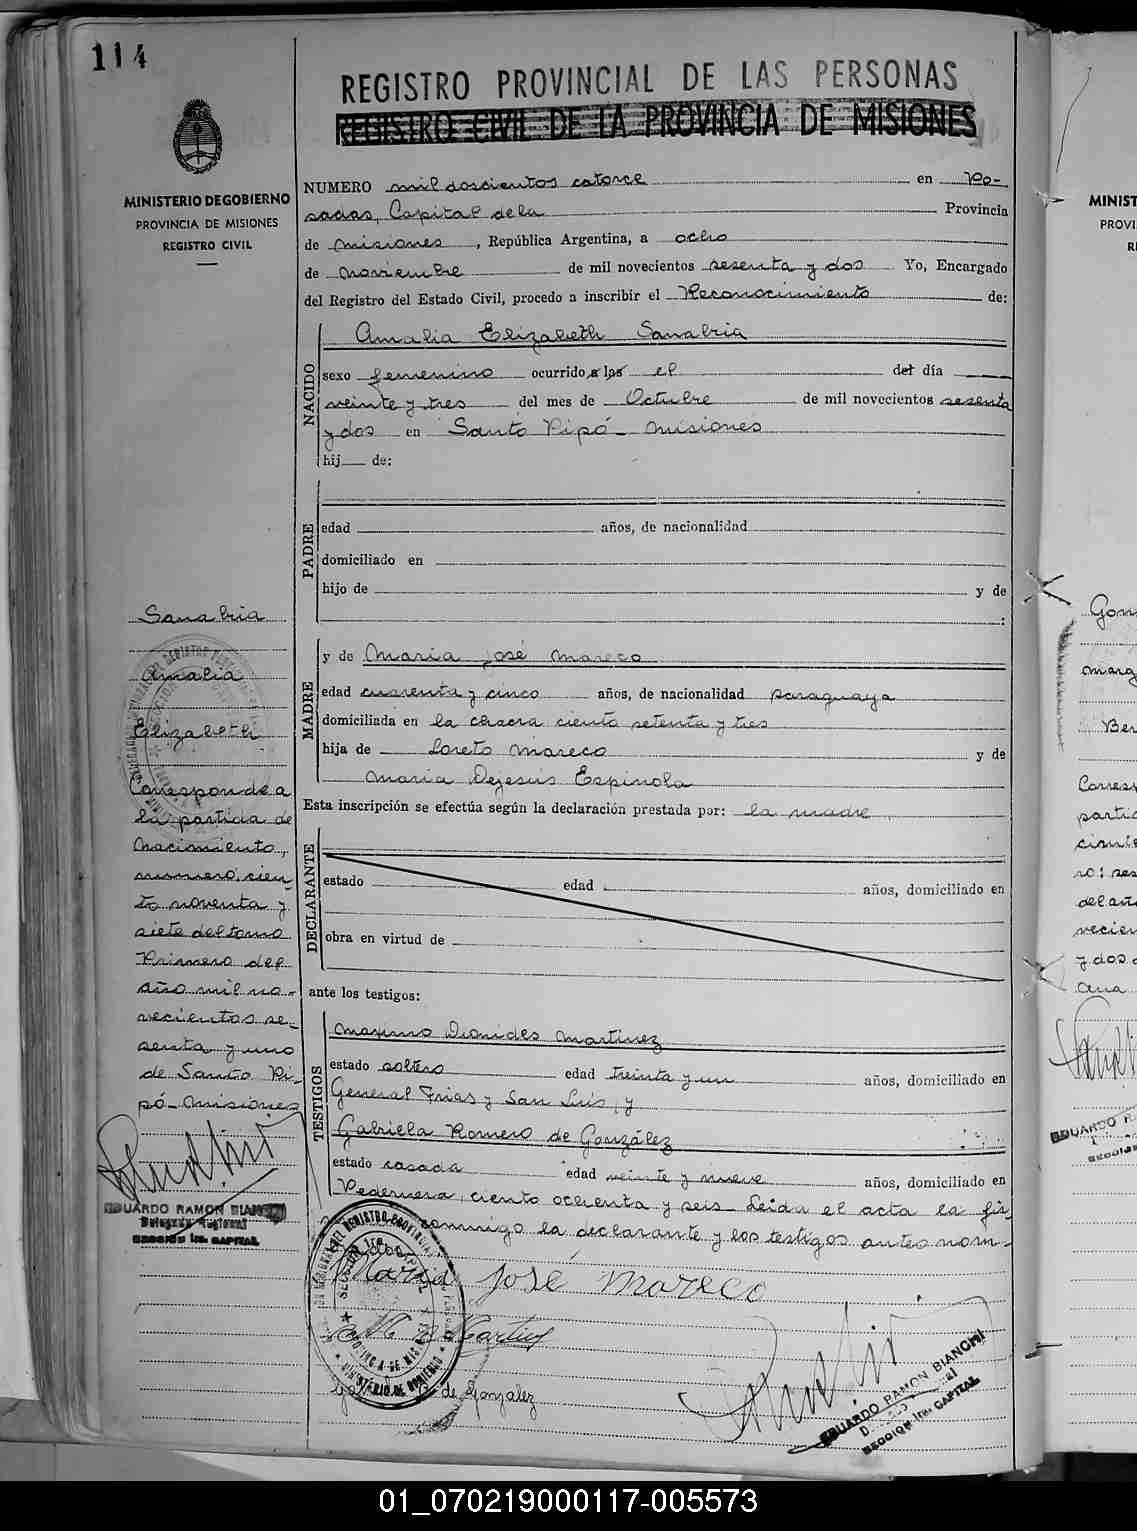 114
REGISTRO PROVINCIAL DE LAS PERSONAS
REGISTRO CIVIL DE LA PROVINCIA DE MISIONES
MINISTERIO DE GOBIERNO
PROVINCIA DE MISIONES
REGISTRO CIVIL
NUMERO mil doscientos catorce en Po-
sadas, Capital de la Provincia
de misiones, República Argentina, a ocho
de noviembre de mil novecientos sesenta y dos Yo, Encargado
del Registro del Estado Civil, procedo a inscribir el Reconocimiento de:
NACIDO
Amalia Elizabeth Sanabria
sexo femenino ocurrido a las el del día
veinte y tres del mes de Octubre de mil novecientos sesenta
y dos en Santo Pipó - misiones
hij de:
PADRE
edad años, de nacionalidad
domiciliado en
hijo de y de
:
MADRE
y de Maria José Mareco
edad cuarenta y cinco años, de nacionalidad paraguaya
domiciliada en la chacra ciento setenta y tres
hija de Loreto Mareco y de
Maria Dejesús Espinola
Esta inscripción se efectúa según la declaración prestada por: la madre
DECLARANTE
estado edad años, domiciliado en
obra en virtud de
ante los testigos:
TESTIGOS
Maximo Dionides Martinez
estado soltero edad treinta y un años, domiciliado en
General Frias y San Luis, y
Gabriela Romero de González
estado casada edad veinte y nueve años, domiciliado en
Pedernera, ciento ochenta y seis. Leida el acta la fir-
conmigo la declarante y los testigos antes nom-
Maria José Mareco
de Gonzalez
EDUARDO RAMON BIANCHI
SECCION 1ra. CAPITAL
Sanabria
Amalia
Elizabeth
Corresponde a
la partida de
Nacimiento,
número, cien-
to noventa y
siete del tomo
Primero del
año mil no-
vecientos se-
senta y uno
de Santo Pi-
pó - Misiones
EDUARDO RAMON BIANCHI
Delegado Regional
SECCION 1ra. CAPITAL
01_070219000117-005573